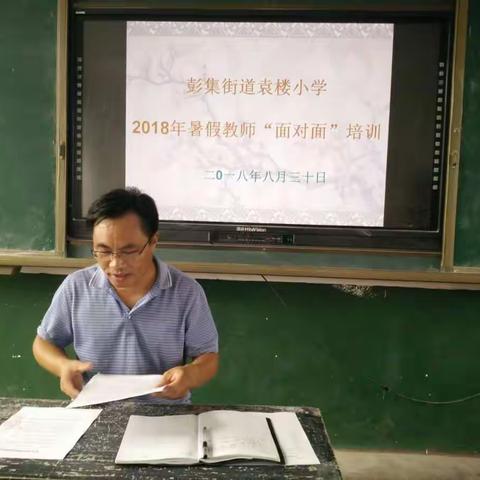 彭集街道袁楼小学
2018年暑假教师“面对面”培训
二0一八年八月三十日
HiteVision